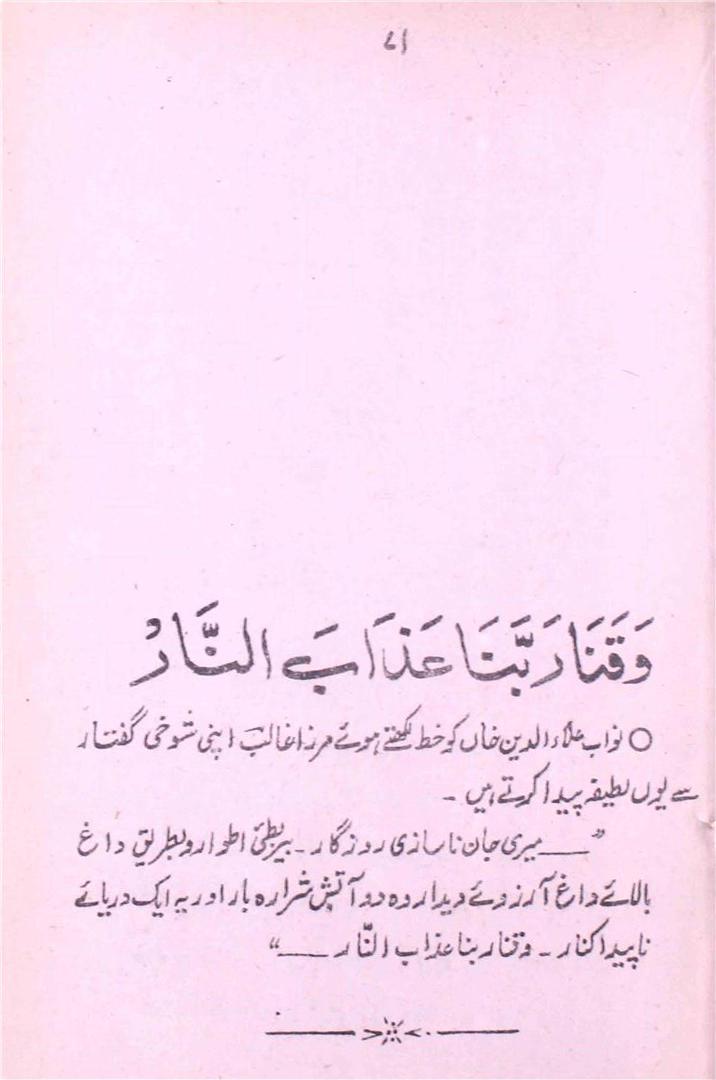 ۷۱
وَقَنَا رَبَّنَا عَذَابَ النَّارْ
○ نواب علاء الدین خاں کو خط لکھتے ہوئے مرزا غالب اپنی شوخی گفتار
سے یوں لطیفہ پیدا کرتے ہیں ۔
”——میری جان ناسازی روزگار ۔ بیربطئی اطوار و بطریق داغ
بالائے داغ آرزوئے دیدار وہ دو آتش شرارہ بار اور یہ ایک دریائے
ناپیدا کنار ۔ وقنا ربنا عذاب النّار ——“